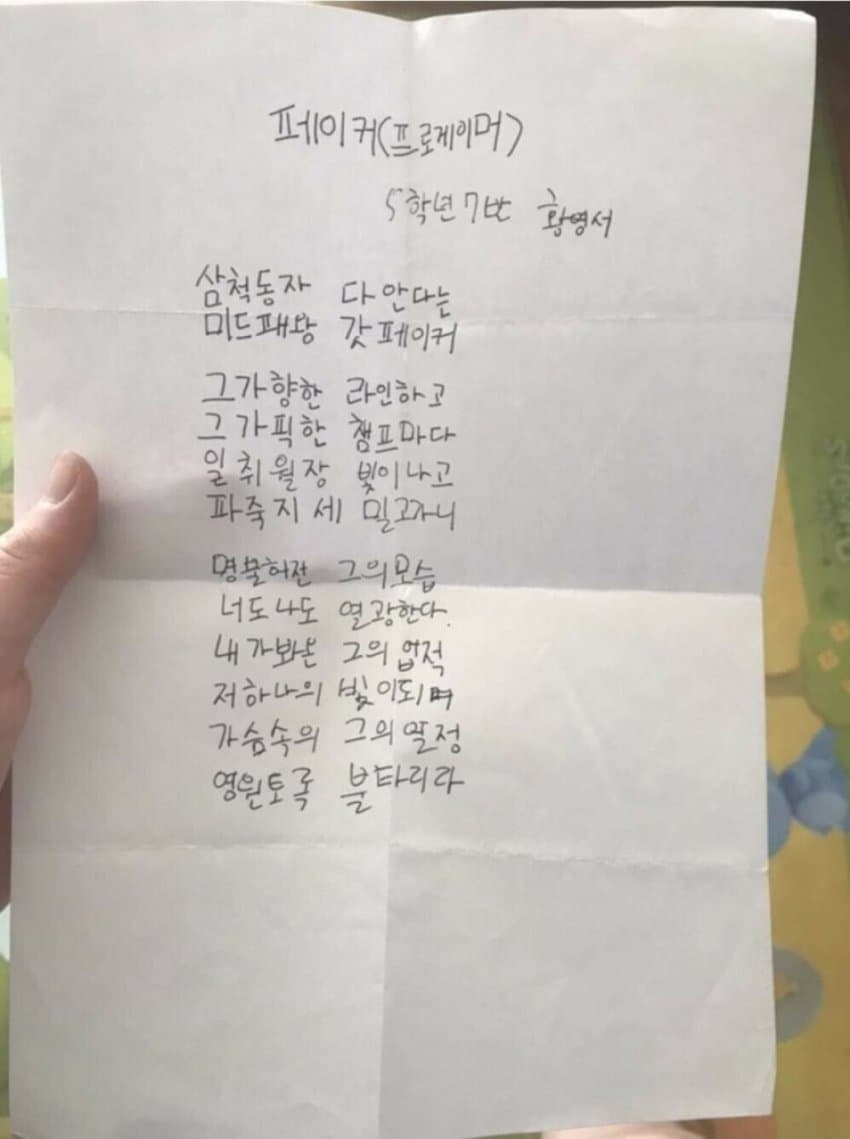 페이커(프로게이머)
5학년 7반 황영서
삼척동자 다 안다는
미드패왕 갓 페이커
그가향한 라인하고
그가픽한 챔프마다
일취월장 빛이나고
파죽지세 밀고가니
명불허전 그의모습
너도나도 열광한다.
내가봐온 그의 업적
저하나의 빛이되며
가슴속의 그의열정
영원토록 불타리라